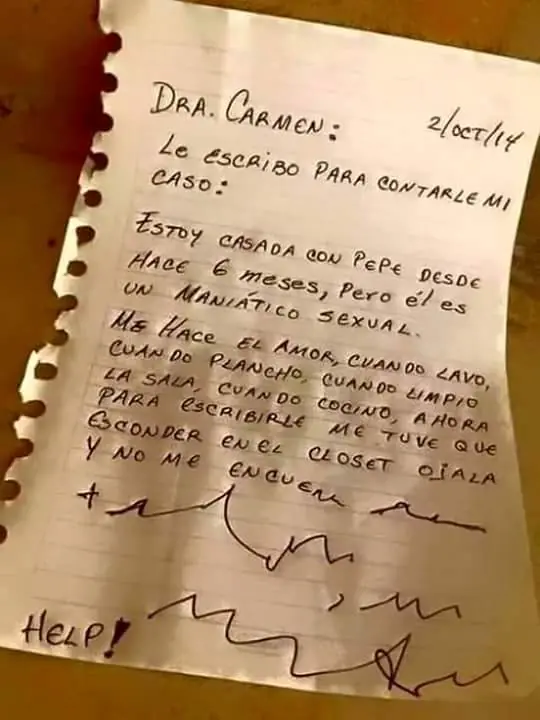 DRA. CARMEN:
2/OCT/14
LE ESCRIBO PARA CONTARLE MI
CASO:
ESTOY CASADA CON PEPE DESDE
HACE 6 meses, Pero él es
UN MANIÁTICO SEXUAL.
ME HACE EL AMOR, CUANDO LAVO,
CUANDO PLANCHO, CUANDO LIMPIO
LA SALA, CUANDO COCINO, AHORA
PARA ESCRIBIRLE ME TUVE QUE
ESCONDER EN EL CLOSET OJALA
Y NO ME ENCUEN
HELP!